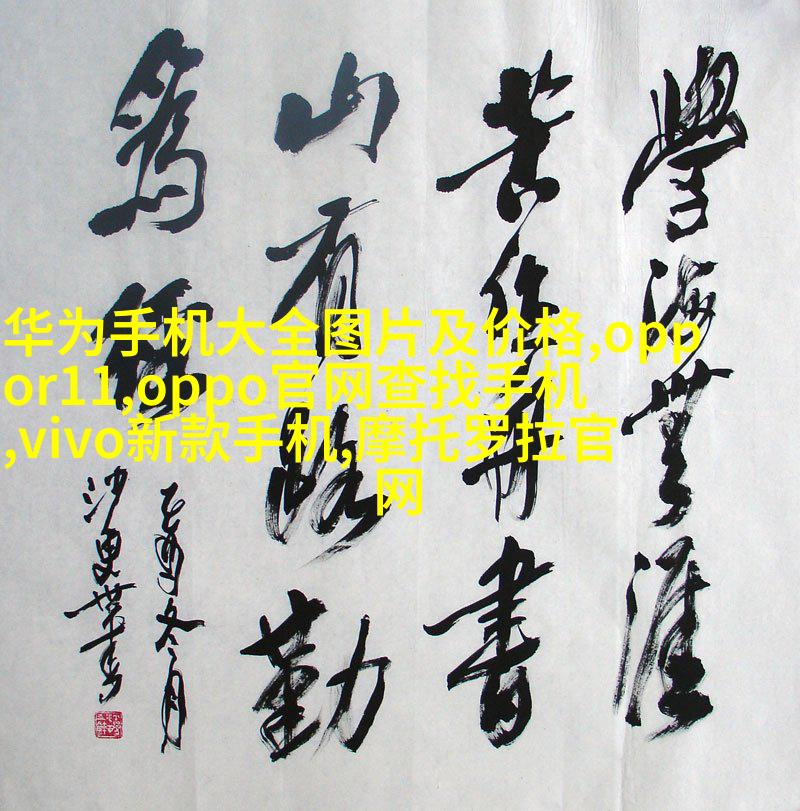 學海無涯
苦作舟書
山有路勤
為徑
乙酉冬月
华为手机大全图片及价格,opp
or11,oppo官网查找手机
,vivo新款手机,摩托罗拉官
网